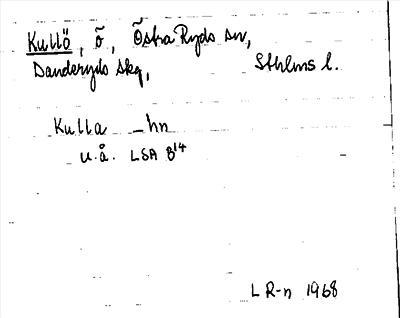 Kullö, ö, Östra Ryds sn,
Danderyds skg, Sthlms l.
Kulla – hn
u.å. LSA B14
L R-n 1968